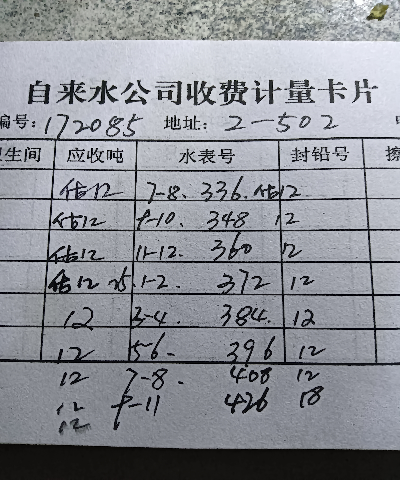 自来水公司收费计量卡片
编号: 172085 地址: 2-502
卫生间 应收吨 水表号 封铅号
估12 7-8. 336. 估12
估12 9-10. 348 12
估12 11-12. 360 12
估12 25.1-2. 372 12
12 3-4. 384. 12
12 5-6. 396 12
12 7-8. 408 12
12 9-11 426 18
12